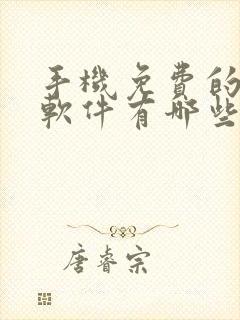 手機免費的
軟件有哪些
唐睿宗